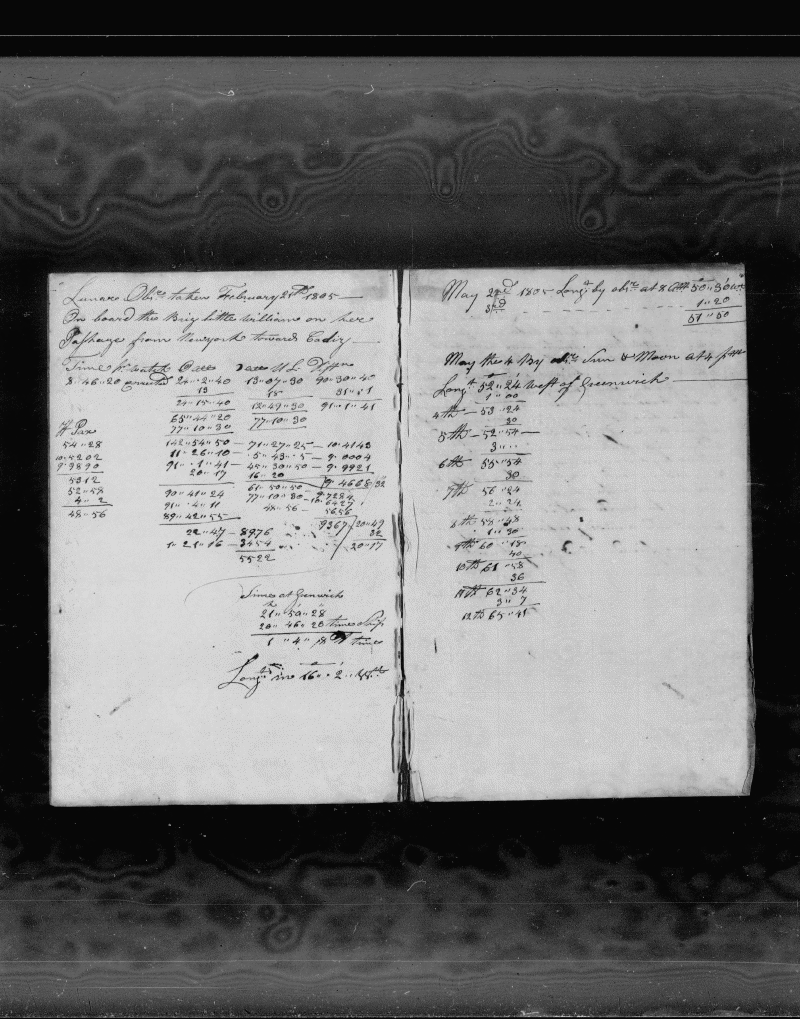 Lunare Obsns taken February 21th 1805
On board the Brig little William on her
Passage from Newyork toward Cadiz
Time pr watch
8 " 46 " 20 corrected 24 " 2 " 40 13 " 07 " 30 90 " 30 " 40
13 18 31 " " 1
24 " 15 " 40 12 " 49 " 30 91 " 1 " 41
65 " 44 " 20 77 " 10 " 30
H Par 77 " 10 " 30
54 " 28 142 " 54 " 50 — 71 " 27 " 25 — 10 " 4143
10 " 5202 11 " 26 " 10 — 5 " 43 " 5 — 9 " 0004
9 " 9890 91 " 1 " 41 — 45 " 30 " 50 — 9 " 9921
5312 20 " 17 16 " 20 9 " 4668 / 32
52 " 58 90 " 41 " 24 61 " 50 " 50 9 " 7284
4 " 2 91 " 4 " 11 77 " 10 " 30 — 10 " 6427
48 " 56 89 " 42 " 55 48 " 56 — 5656
9367 / 20 " 49
22 " 47 — 8976 32
1 " 21 " 16 — 3454 20 " 17
5522
Times at Grenwich
21 " 50 " 28
20 " 46 " 20 times Ship
1 " 4 " 8 times
Longt in 16 " 2 " Wt
May 2nd 1805 Longt by obsn at 8 50 " 30 West
3rd 1 " 20
51 " 50
May the 4 By obsn Sun & Moon at 4 p m
Longt 52 " 24 West of Greenwich
1 " 00
4th 53 " 24
30
5th 52 " 54
3 "
6th 55 " 54
30
7th 56 " 24
2 " 24
8th 58 " 48
1 " 30
9th 60 " 18
40
10th 61 " 58
36
11th 62 " 34
3 " 7
12th 65 " 41